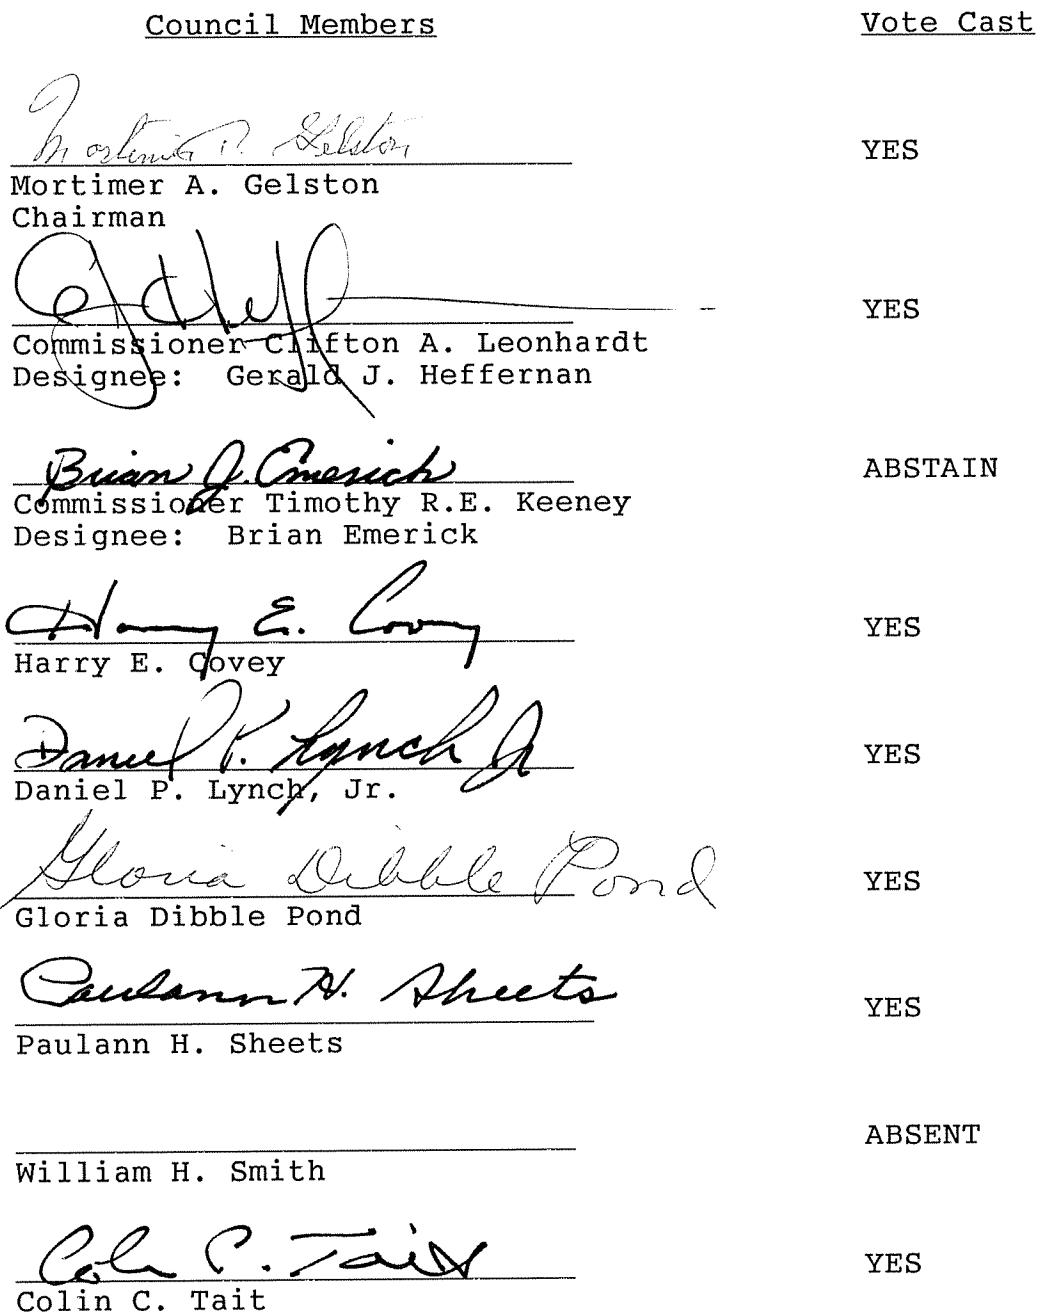 Council Members Vote Cast
Mortimer A. Gelston YES
Mortimer A. Gelston
Chairman
YES
Commissioner Clifton A. Leonhardt
Designee: Gerald J. Heffernan
Brian J. Emerick ABSTAIN
Commissioner Timothy R.E. Keeney
Designee: Brian Emerick
Harry E. Covey YES
Harry E. Covey
Daniel P. Lynch Jr YES
Daniel P. Lynch, Jr.
Gloria Dibble Pond YES
Gloria Dibble Pond
Paulann H. Sheets YES
Paulann H. Sheets
ABSENT
William H. Smith
Colin C. Tait YES
Colin C. Tait